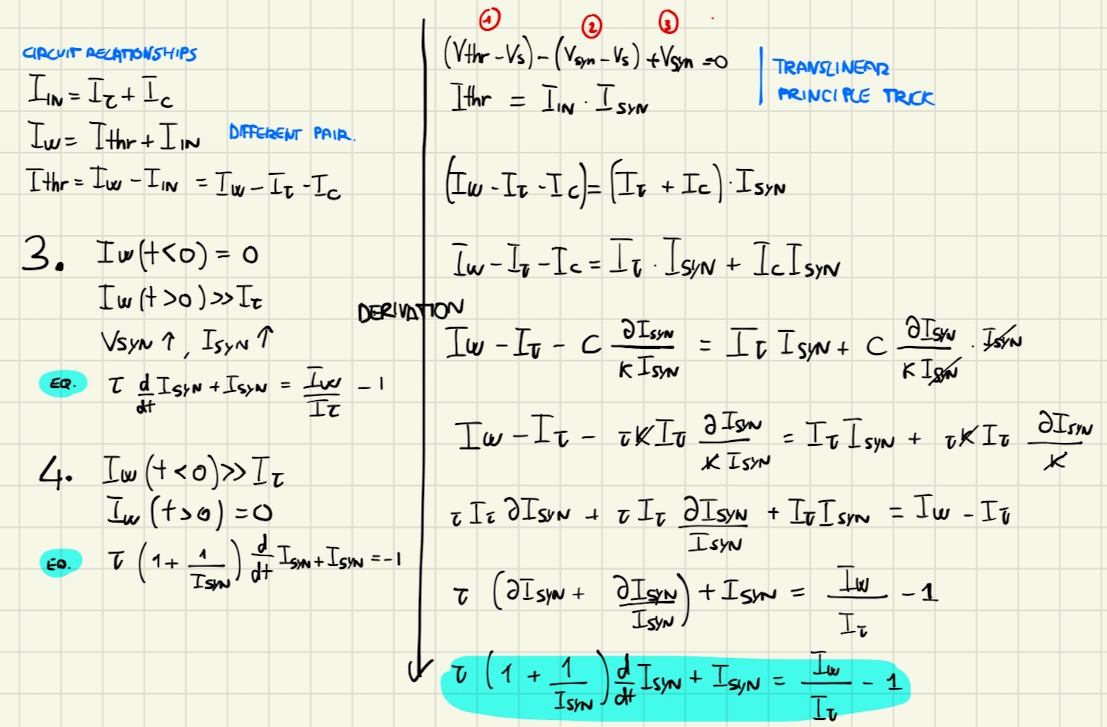 CIRCUIT RELATIONSHIPS
I_IN = I_τ + I_C
I_W = Ithr + I_IN DIFFERENT PAIR.
Ithr = I_W - I_IN = I_W - I_τ - I_C
3. I_W (t<0) = 0
I_W (t>0) >> I_τ
V_SYN ↑, I_SYN ↑
EQ. τ d/dt I_SYN + I_SYN = I_W/I_τ - 1
4. I_W (t<0) >> I_τ
I_W (t>0) = 0
EQ. τ (1 + 1/I_SYN) d/dt I_SYN + I_SYN = -1
DERIVATION
1 2 3
(Vthr - V_S) - (V_syn - V_S) + V_syn = 0
TRANSLINEAR
PRINCIPLE TRICK
Ithr = I_IN · I_SYN
(I_W - I_τ - I_C) = (I_τ + I_C) · I_SYN
I_W - I_τ - I_C = I_τ · I_SYN + I_C I_SYN
I_W - I_τ - C ∂I_SYN/(K I_SYN) = I_τ I_SYN + C ∂I_SYN/(K I_SYN) · I_SYN
I_W - I_τ - τ K I_τ ∂I_SYN/(K I_SYN) = I_τ I_SYN + τ K I_τ ∂I_SYN/K
τ I_τ ∂I_SYN + τ I_τ ∂I_SYN/I_SYN + I_τ I_SYN = I_W - I_τ
τ (∂I_SYN + ∂I_SYN/I_SYN) + I_SYN = I_W/I_τ - 1
τ (1 + 1/I_SYN) d/dt I_SYN + I_SYN = I_W/I_τ - 1